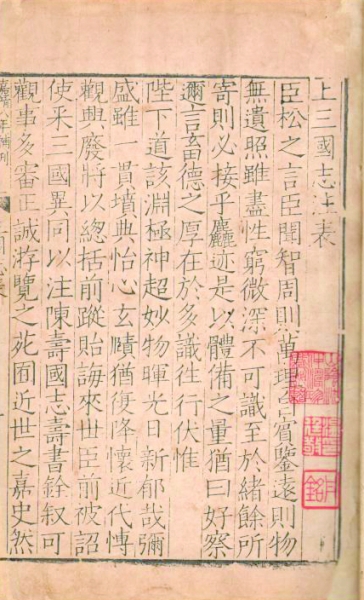 上三國志注表
臣松之言臣聞智周則萬理自賓鑒遠則物
無遺照雖盡性窮微深不可識至於緒餘所
寄則必接乎麤迹是以體備之量猶曰好察
邇言畜德之厚在於多識往行伏惟
陛下道該淵極神超妙物暉光日新郁哉彌
盛雖一貫墳典怡心玄賾猶復降懷近代愽
觀興廢將以總括前蹤貽誨來世臣前被詔
使采三國異同以注陳壽國志壽書銓叙可
觀事多審正誠游覽之苑囿近世之嘉史然
嘉靖八年補刊